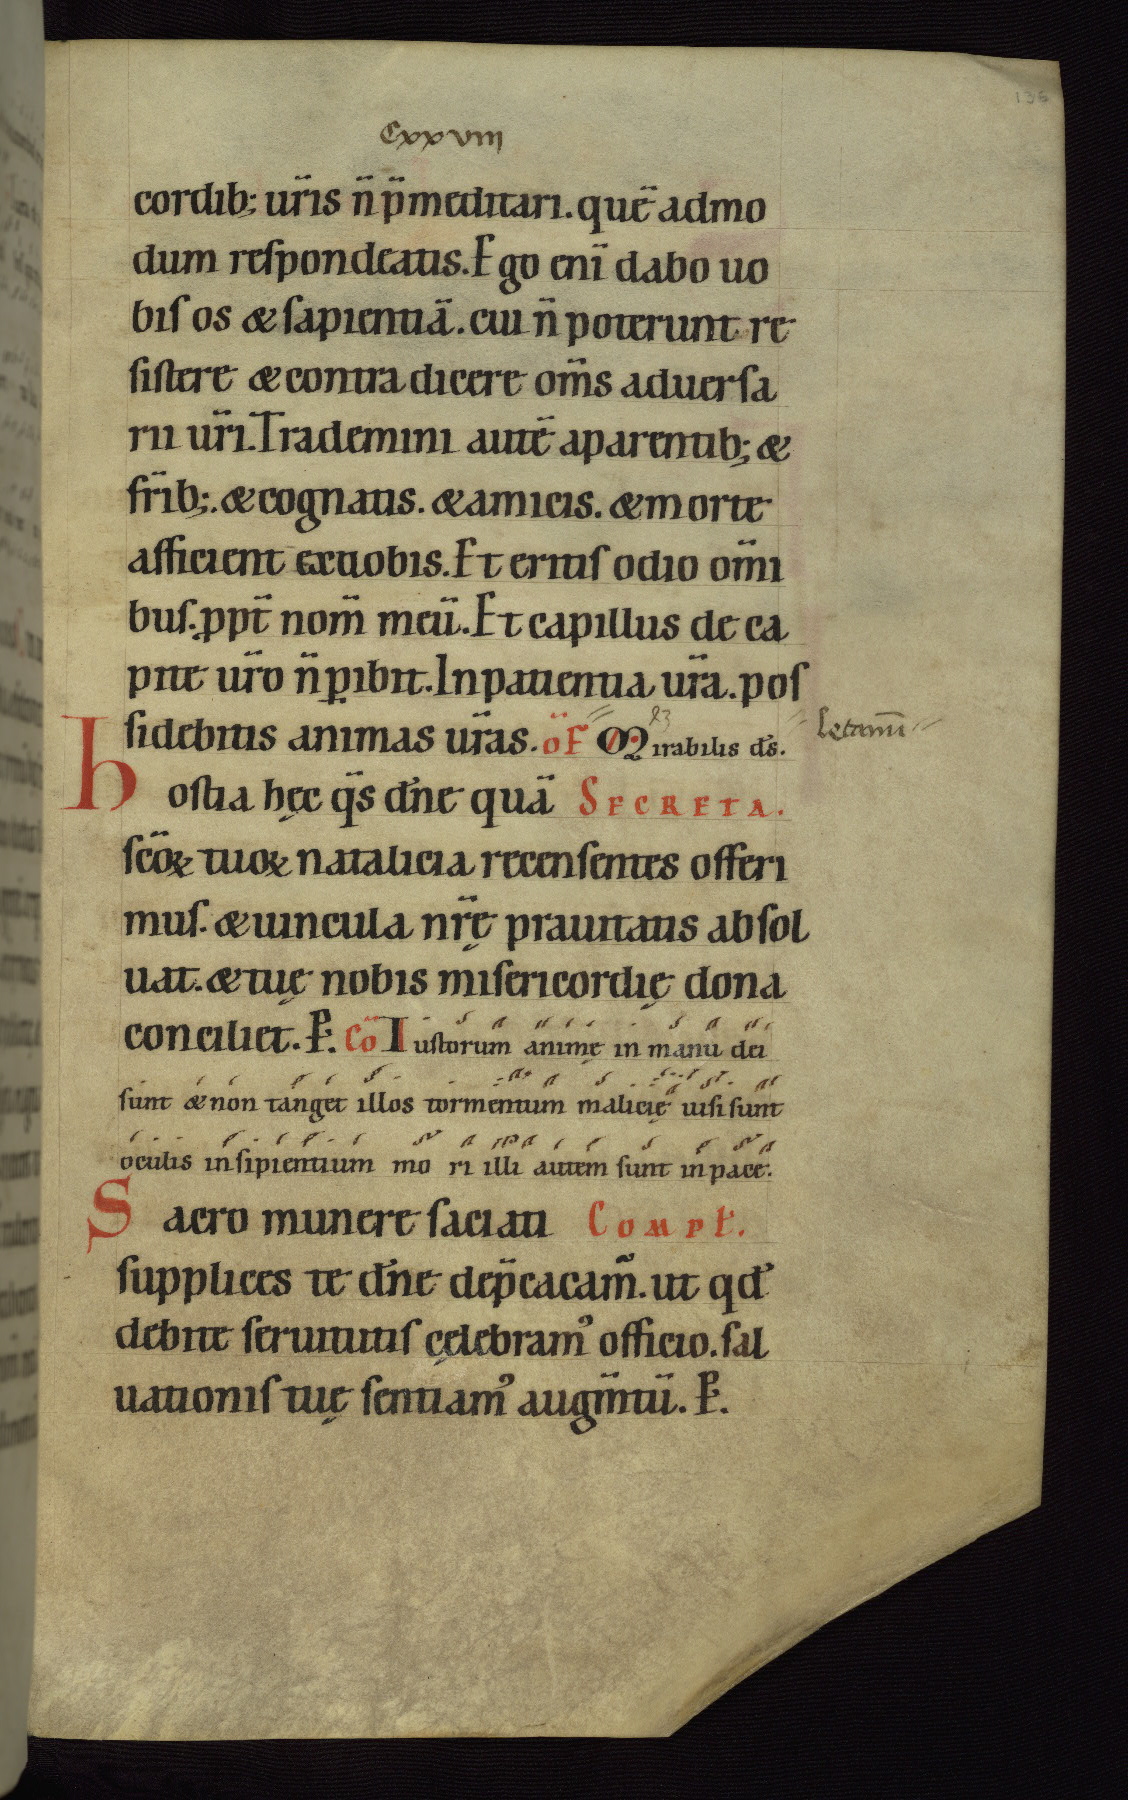 136
Cxxviii
cordib; ur̄is n̄ p̄meditari. quē admo
dum reſpondeatis. Ego enī dabo uo
biſ os & ſapientiā. cui n̄ poterunt re
ſiſtere & contra dicere om̄s aduerſa
rii ur̄i. Trademini autē aparentib; &
fr̄ib;. & cognatis. & amicis. & morte
afficient ex uobis. Et eritiſ odio om̄i
buſ. ꝓpt̄ nom̄ meū. Et capillus de ca
pite ur̄o n̄ ꝑibit. In patientia ur̄a. poſ
ſidebitis animas ur̄as. ōF Mirabilis d̄s. Letamī
Hostia hęc q̄s dn̄e quā Secreta.
ſcōꝝ tuoꝝ natalicia recenſentes offeri
muſ. & uincula nr̄ę prauitatis abſol
uat. & tuę nobis miſericordię dona
conciliet. P. Cō Iuſtorum animę in manu dei
ſunt & non tanget illos tormentum malicię uiſi ſunt
oculis inſipientium mo ri illi autem ſunt in pace.
Sacro munere ſaciati Compł.
ſupplices te dn̄e dep̄cacam̄. ut qd̄
debite ſeruitutiſ cęlebramꝰ officio. ſal
uationiſ tuę ſentiamꝰ augm̄tū. P.